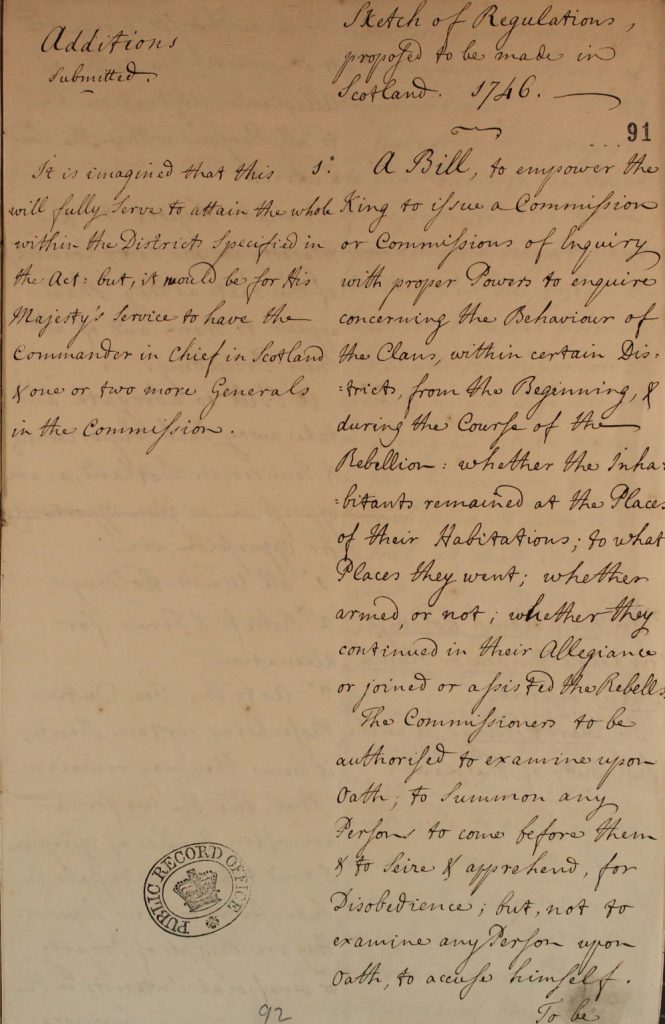 Additions
Submitted.
It is imagined that this
will fully Serve to attain the whole
within the Districts Specified in
the Act: but, it would be for His
Majesty's Service to have the
Commander in Chief in Scotland
& one or two more Generals
in the Commission.
Sketch of Regulations,
proposed to be made in
Scotland. 1746.
91
1º. A Bill, to empower the
King to issue a Commission
or Commissions of Enquiry
with proper Powers to enquire
concerning the Behaviour of
the Clans, within certain Dis:
:tricts, from the Beginning, &
during the Course of the
Rebellion: whether the Inha:
:bitants remained at the Places
of their Habitations; to what
Places they went; whether
armed, or not; whether they
continued in their Allegiance
or joined or assisted the Rebells
The Commissioners to be
authorised to examine upon
Oath; to Summon any
Persons to come before them
& to Seize & apprehend, for
Disobedience; but, not to
examine any Person upon
Oath, to accuse himself.
To be
PUBLIC RECORD OFFICE
92